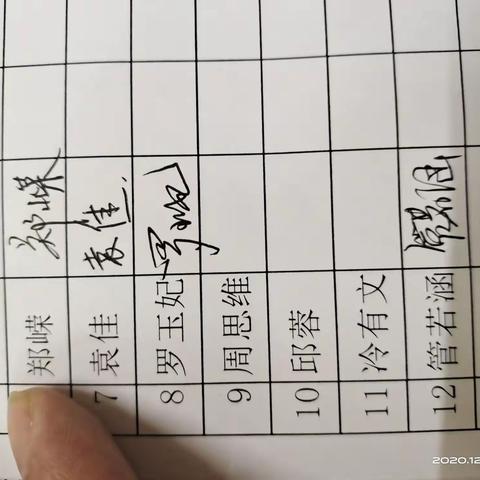 郑嵘 郑嵘
7 袁佳 袁佳
8 罗玉妃
9 周思维
10 邱蓉
11 冷有文
12 管若涵 管若涵
2020.12